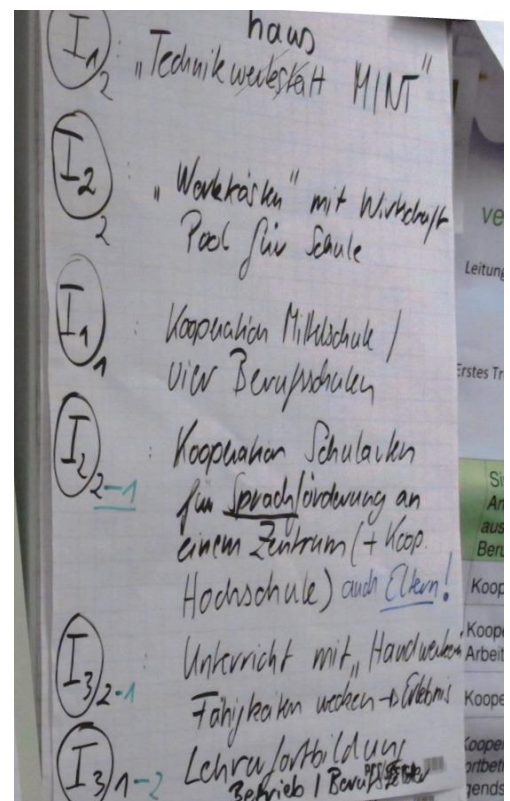 haus
I1 2 : „Technikwerkstatt MINT"
I2 2 : „Werkkästen" mit Wirtschaft
Pool für Schule
I1 1 : Kooperation Mittelschule /
vier Berufsschulen
I2 2-1 : Kooperation Schularten
für Sprachförderung an
einem Zentrum (+ Koop.
Hochschule) auch Eltern!
I3 2-1 : Unterricht mit „Handwerkern"
Fähigkeiten wecken → Erlebnis
I3 1-2 : Lehrerfortbildung
Betrieb /
ve
Leitung
Erstes Tr
Si
An
aus
Beru
Koop
Koope
Arbeit
Koope
Kooper
ortbet
gends